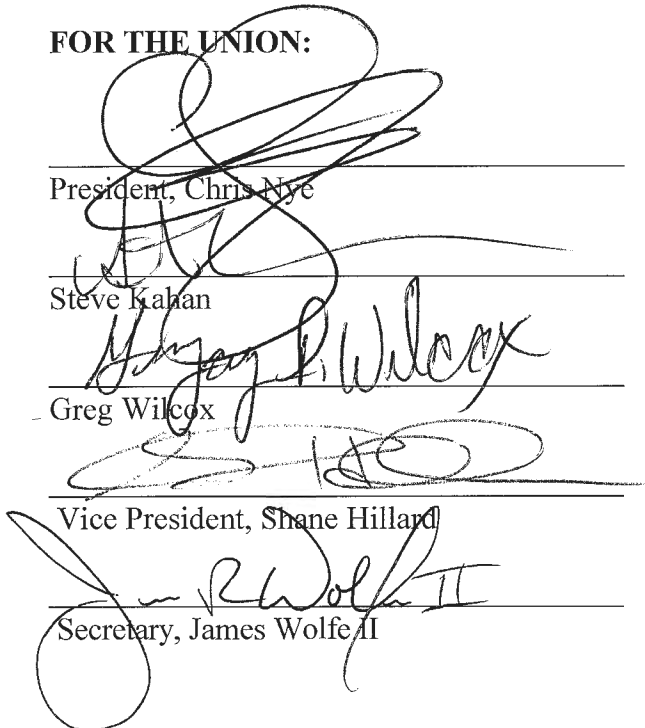 FOR THE UNION:
President, Chris Nye
Steve Kahan
Gregory P. Wilcox
Greg Wilcox
Vice President, Shane Hillard
James R Wolfe II
Secretary, James Wolfe II